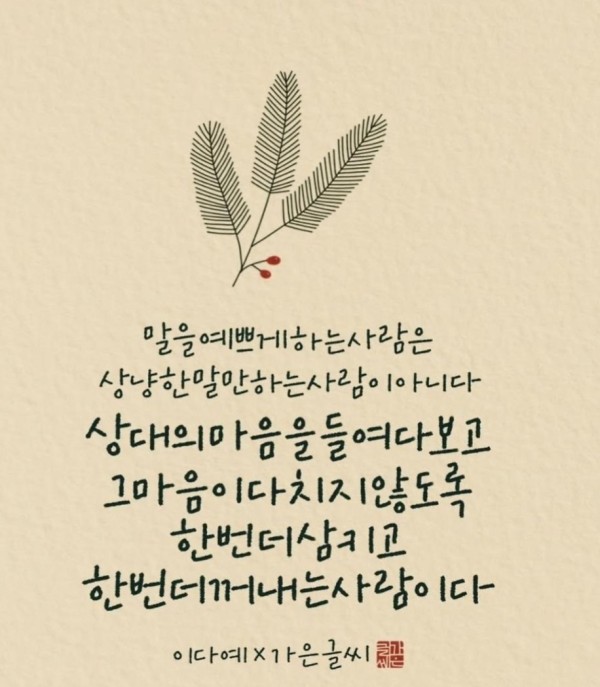 말을예쁘게하는사람은
상냥한말만하는사람이아니다
상대의마음을들여다보고
그마음이다치지않도록
한번더삼키고
한번더꺼내는사람이다
이다예x가은글씨
가은글씨